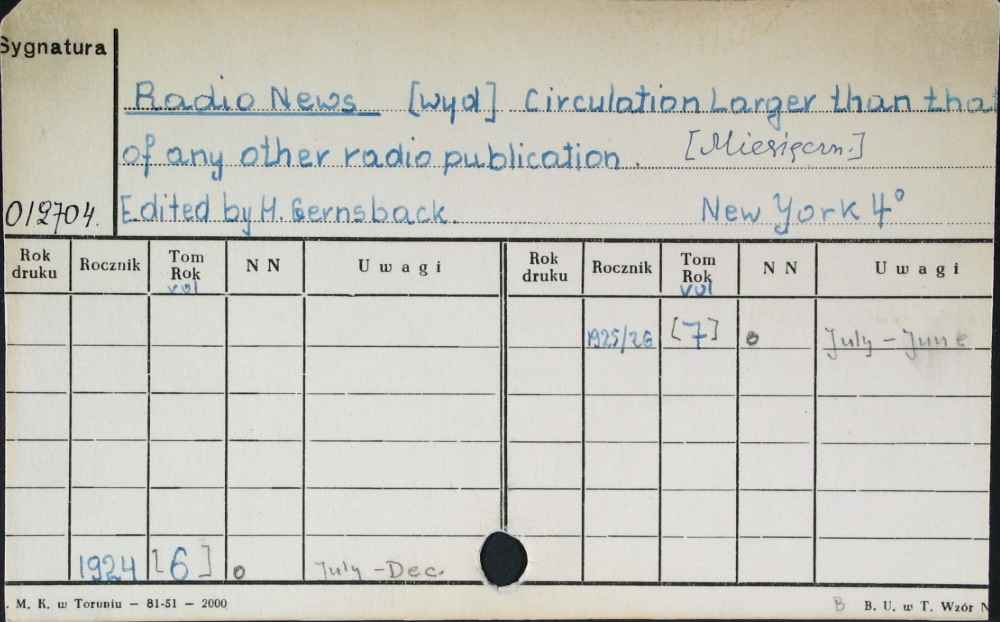 Sygnatura
Radio News [wyd] Circulation Larger than tha
of any other radio publication. [Miesięczn.]
012704. Edited by H. Gernsback. New York 4°
Rok druku Rocznik Tom Rok vol N N Uwagi Rok druku Rocznik Tom Rok vol N N Uwagi
1925/26 [7] o July - June
1924 [6] o July - Dec.
. M. K. w Toruniu — 81-51 — 2000 B B. U. w T. Wzór N